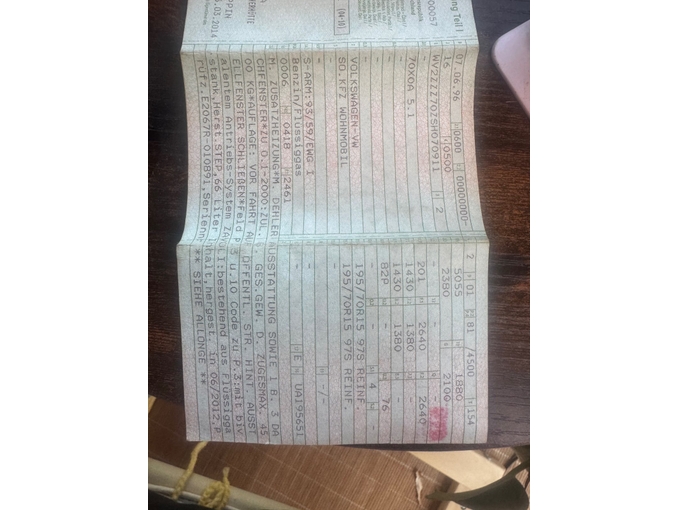 ng Teil I
00057
[04-10]
PPIN
.03.2014
07.06.96 0600 00000000-
16 0500
WV2ZZZ70ZSH070911 2
70X0A 5.1
-
VOLKSWAGEN-VW
SO.KFZ WOHNMOBIL
-
S-ARM:93/59/EWG I
Benzin/Flüssiggas
0006 0418 2461
2 01 81 /4500 154
5055 - 1880
2380 2100
- - -
201 2640 2640
1430 1380 -
1430 1380 -
82P - 4 76
- - -
195/70R15 97S REINF.
195/70R15 97S REINF.
-
- -/-
- E UA195651
M. ZUSATZHEIZUNG*M. DEHLER AUSSTATTUNG SOWIE 1 B. 3 DA
CHFENSTER*ZU D.1-2000:ZUL. GES.GEW. D. ZUGESMAX. 45
00 KG*AUFLAGE: VOR FAHRT AUF ÖFFENTL. STR. HINT. AUSST
ELLFENSTER SCHLIEßEN*Feld P.3 u.10 Code zu P.3:mit biv
alentem Antriebs-System ZA bestehend aus Flüssigga
stank,Herst.STEP,66 Liter Inhalt,hergest. in 06/2012,P
rüfz.E2067R-010891,Serienn ** SIEHE ALLONGE **